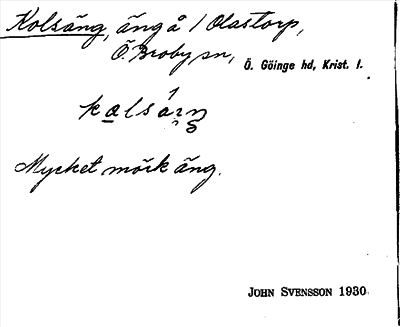 Kolsäng, äng å 1 Olastorp,
Ö. Broby sn, Ö. Göinge hd, Krist. l.
Mycket mörk äng.
JOHN SVENSSON 1930